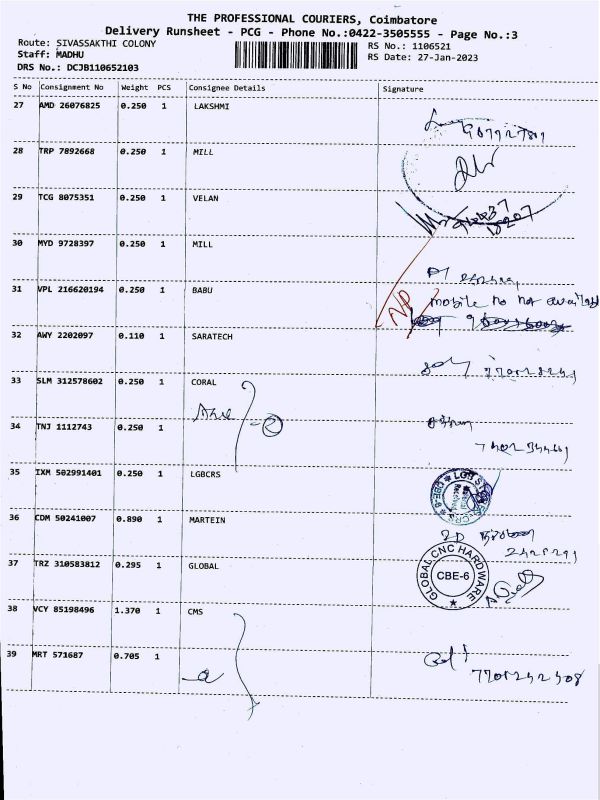 THE PROFESSIONAL COURIERS, Coimbatore
Delivery Runsheet - PCG - Phone No.:0422-3505555 - Page No.:3
Route: SIVASSAKTHI COLONY
RS No.: 1106521
Staff: MADHU
RS Date: 27-Jan-2023
DRS No.: DCJB110652103
S No Consignment No Weight PCS Consignee Details Signature
27 AMD 26076825 0.250 1 LAKSHMI
28 TRP 7892668 0.250 1 MILL
29 TCG 8075351 0.250 1 VELAN
30 MYD 9728397 0.250 1 MILL
31 VPL 216620194 0.250 1 BABU
NP mobile no not available
32 AWY 2202097 0.110 1 SARATECH
33 SLM 312578602 0.250 1 CORAL
34 TNJ 1112743 0.250 1
35 IXM 502991401 0.250 1 LGBCRS
36 CDM 50241007 0.890 1 MARTEIN
37 TRZ 310583812 0.295 1 GLOBAL
GLOBAL CNC HARDWARE
CBE-6
38 VCY 85198496 1.370 1 CMS
39 MRT 571687 0.705 1